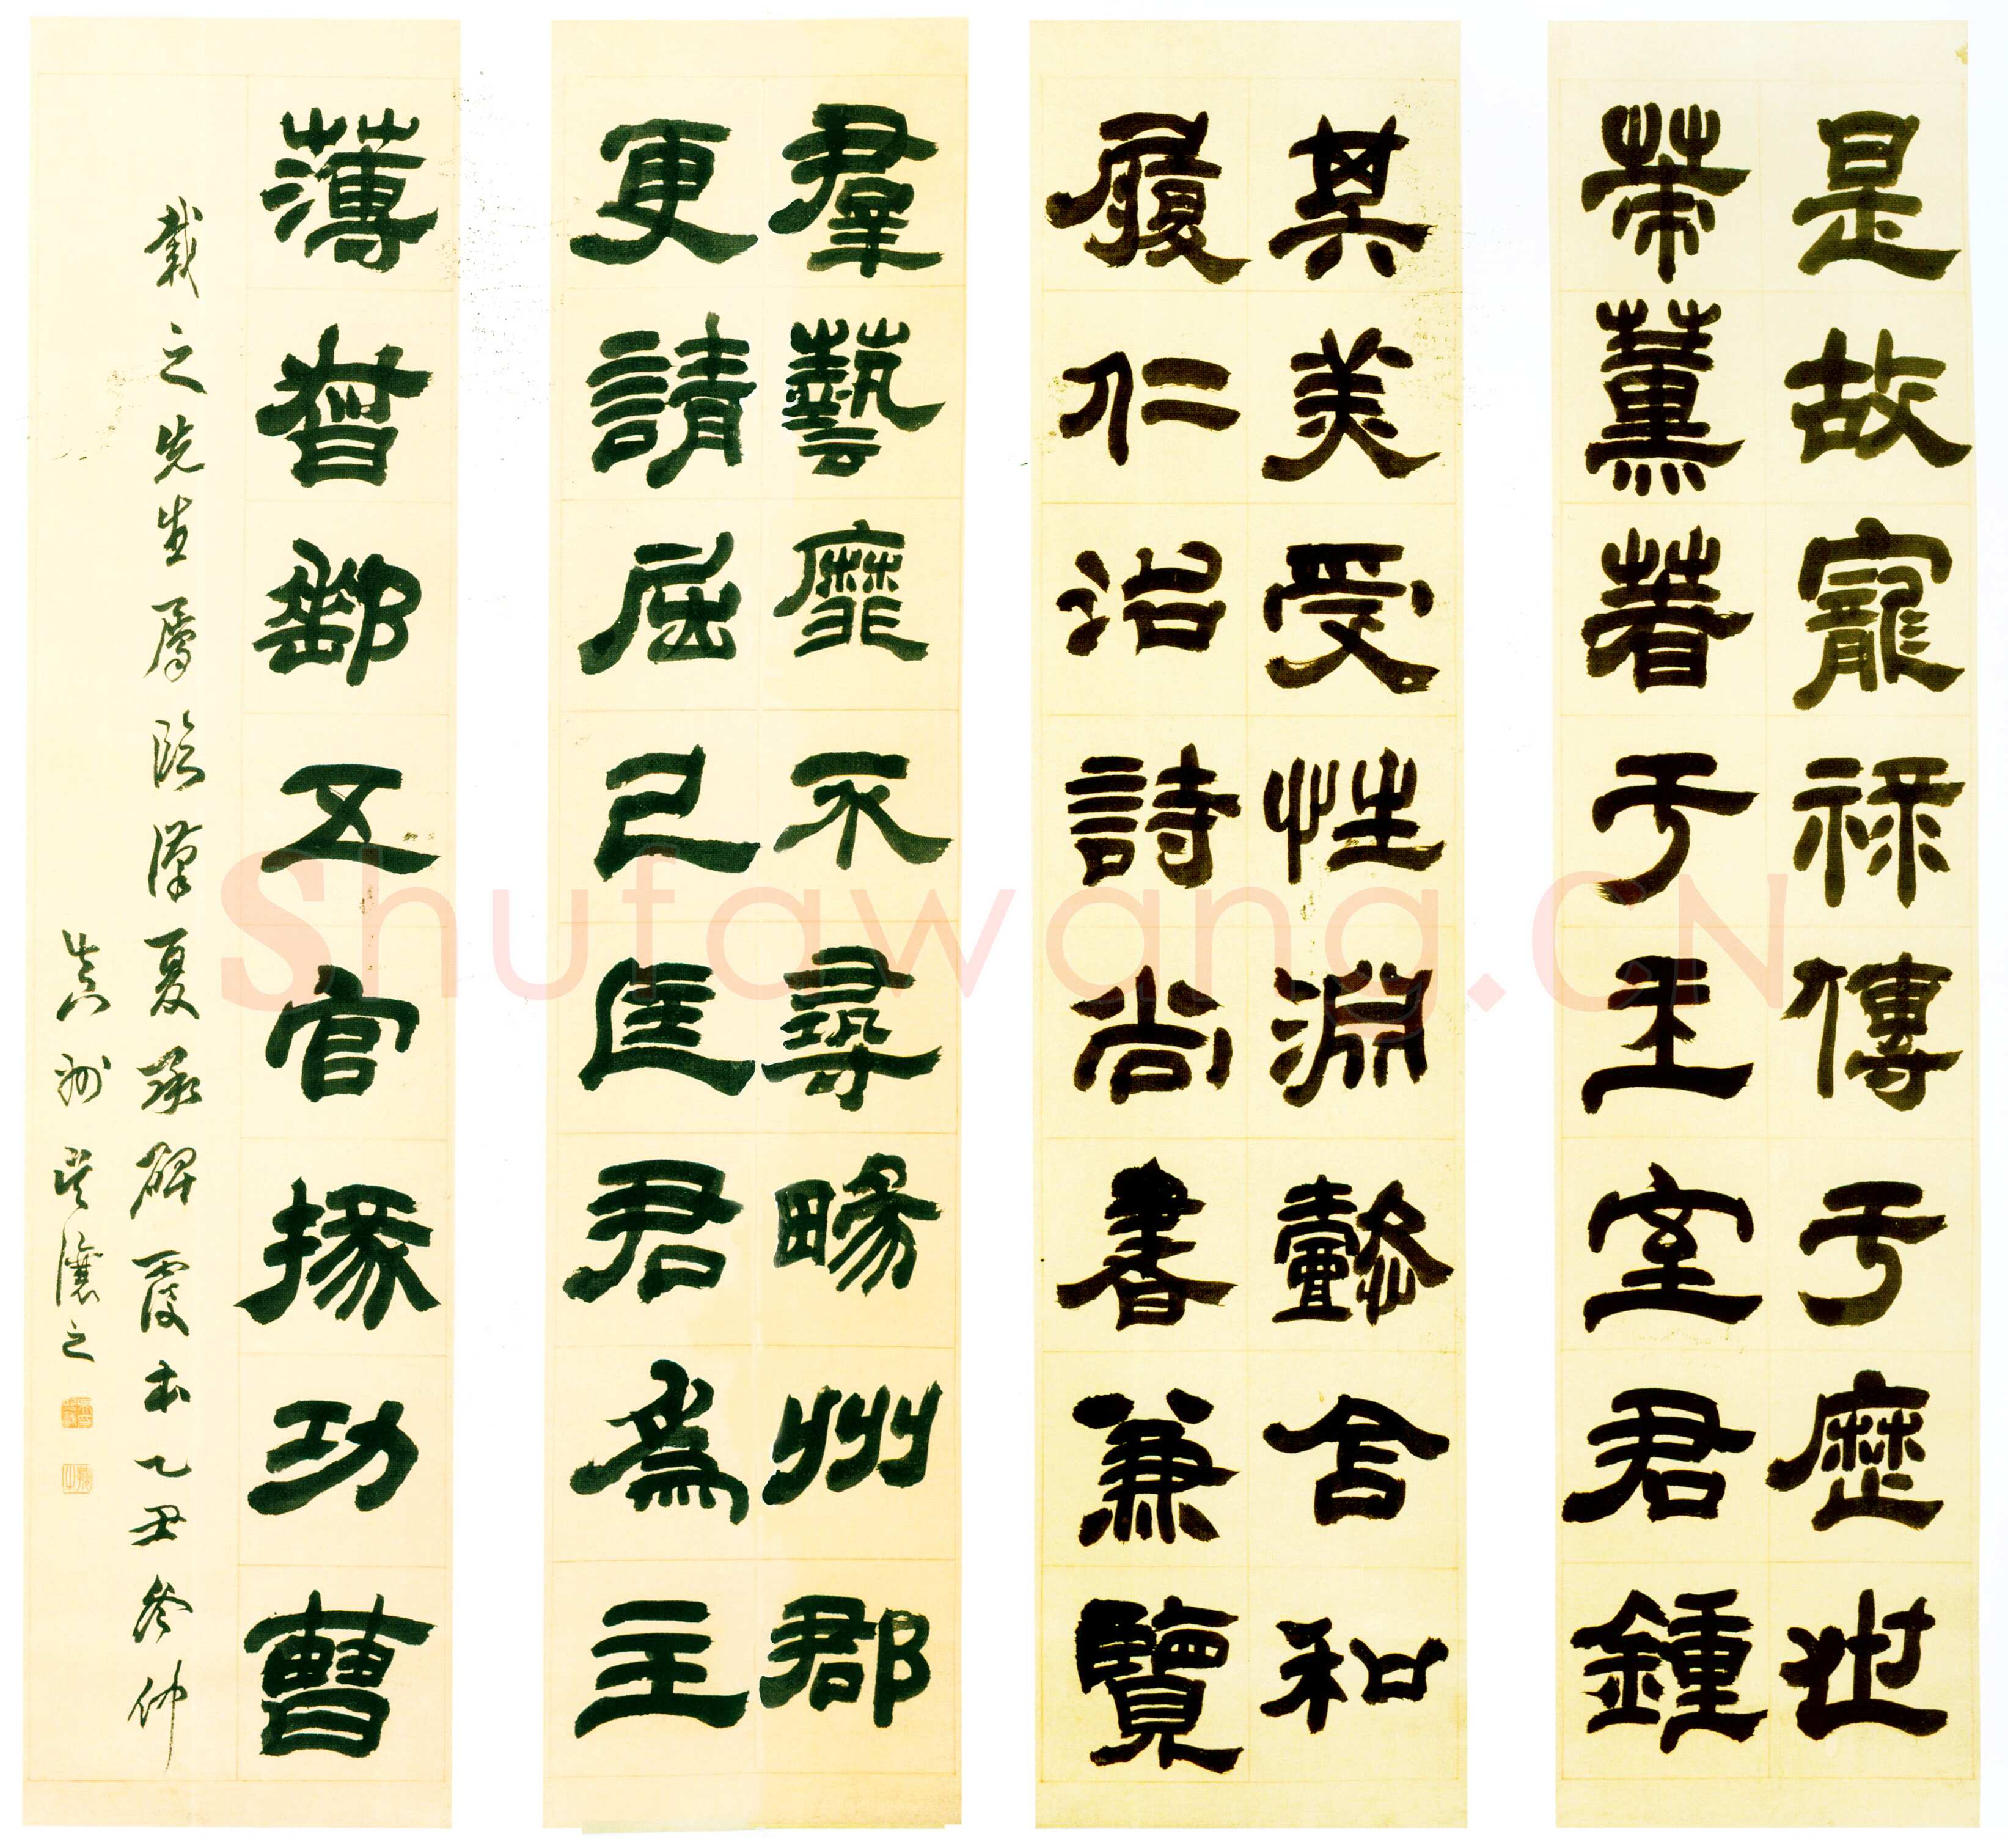 是故寵祿傳于歷世
䇲薰著于王室君鍾
其美受性淵懿含和
履仁治詩尚書兼覽
羣藝靡不尋暢州郡
更請屈己匡君為主
薄督郵五官掾功曹
載之先生屬臨漢夏承碑覆本乙丑冬仲
真州吳讓之
Shufawang.CN